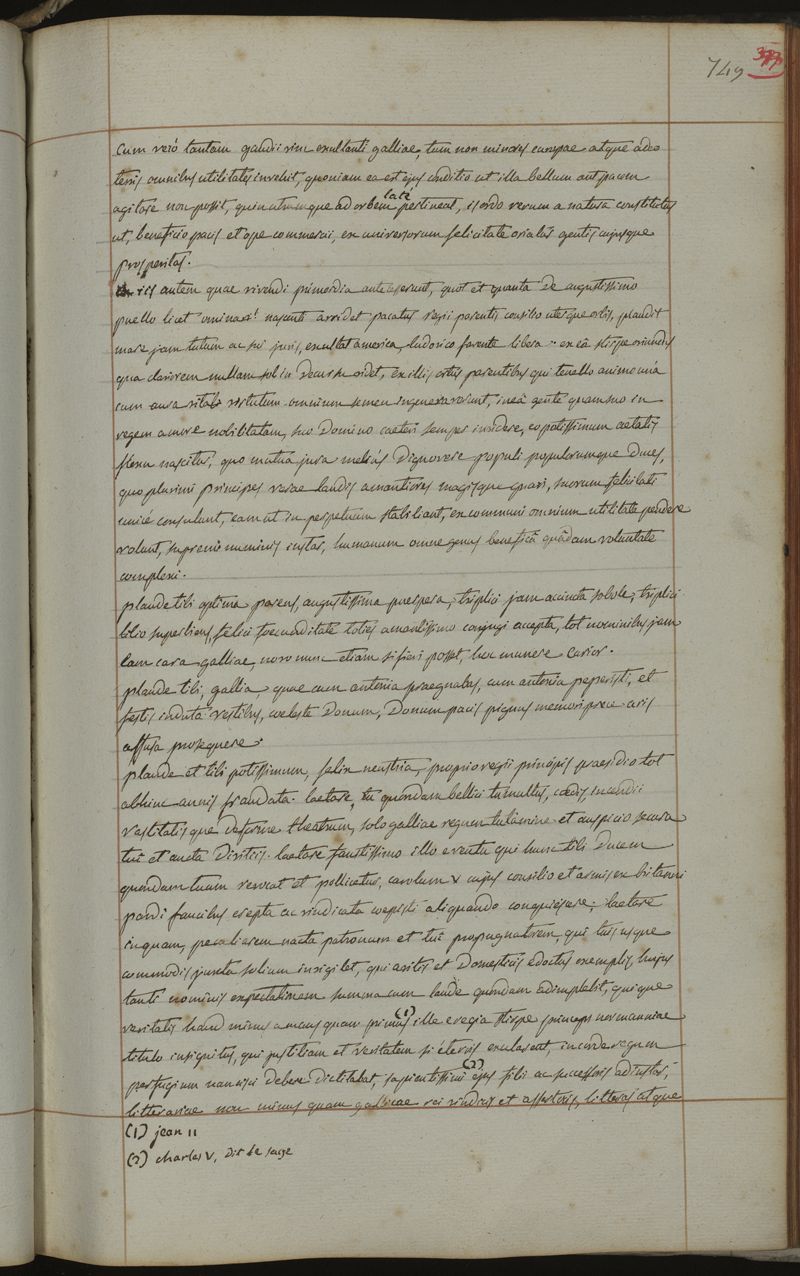 749 373
cum verò tantam gaudii vim exultanti galliae, tum non minores europae atque adeo
terris omnibus utilitates invehit, quoniam ea est ejus conditio ut illa bellum aut pacem
agitare non possit, quin utrumque ad orbem latè pertineat, is ordo rerum a natura constitutus
ut, beneficio pacis et ope commercii, ex universorum felicitate oriatur gentis cujusque
prosperitas.
iis autem quae vivendi primordia antecesserunt, quot et quanta de augustissimo
puello licet ominari! nascenti arridet pacatus regii parentis consilio uterque orbis, plaudit
mare jam tutum ac sui juris, exultat america, ludovico favente libera. ex eâ stirpe oriundus
qua clariorem nullam sol in decursu videt, ex illis ortus parentibus qui tenello animo unà
cum aura vitali virtutum omnium semen ingeneraverunt, in eâ gente quam suo in
regem amore nobilitatam, suo Domino caeteri semper invidere, eo potissimum aetatis
flexu nascitur, quo mutua jura meliùs Dignovere populi populorumque Duces,
quo plurimi principes verae laudis amantiores magisque gnari, suorum felicitati
unicè consulunt, eam ut in perpetuum stabiliant, ex communi omnium utilitate pendere
volunt, supremi numinis instar, humanum omne genus beneficâ quâdam voluntate
complexi.
plaude tibi optima parens, augustissima puerpera, triplici jam aucta sobole, triplici
lilio superbiens, felici foecunditate toties amantissimo conjugi accepta, tot nominibus jam
tam cara galliae, novo nunc etiam si fieri posset, hoc munere carior.
plaude tibi, gallia, quae cum antonia praegnabas, cum antonia peperisti, et
festis induta vestibus, coeleste Donum, Donum pacis pignus memori prece aris
affusa prosequere.
plaude et tibi potissimum, felix neustria, proprio regii principis praesidio tot
abhinc annis fraudata. laetare, tu quondam bellici tumultus, caedis, incendii
vastitatisque Deforme theatrum, solo galliae regum tutamine et auspicio secura
tui et aucta Divitiis. laetare faustissimo illo eventu qui hunc tibi Ducem
quondam tuum revocat et pollicetur, carolum v cujus consilio et armis ex britanni
pardi faucibus erepta ac vindicata coepisti aliquando conquiescere; laetare
inquam, peculiarem nacta patronum et tui propugnatorem, qui tuis usque
commodis juxta solium invigilet, qui avitis et Domesticis edoctus exemplis, hujus
tanti nominis expectationem summa cum laude quondam adimplebit, quique
veritatis haud minus amans quam primus (1) ille e regia stirpe princeps normanniae
titulo insignitus, qui justitiam et veritatem si è terris exularent, in corde regum
perfugium nancisci debere dictitabat, sapientissimi (2) ejus filii ac successoris ad instar,
litterariae non minus quam gallicae rei vindicis et assertoris, litteras atque
(1) jean II
(2) charles V, Dit le sage